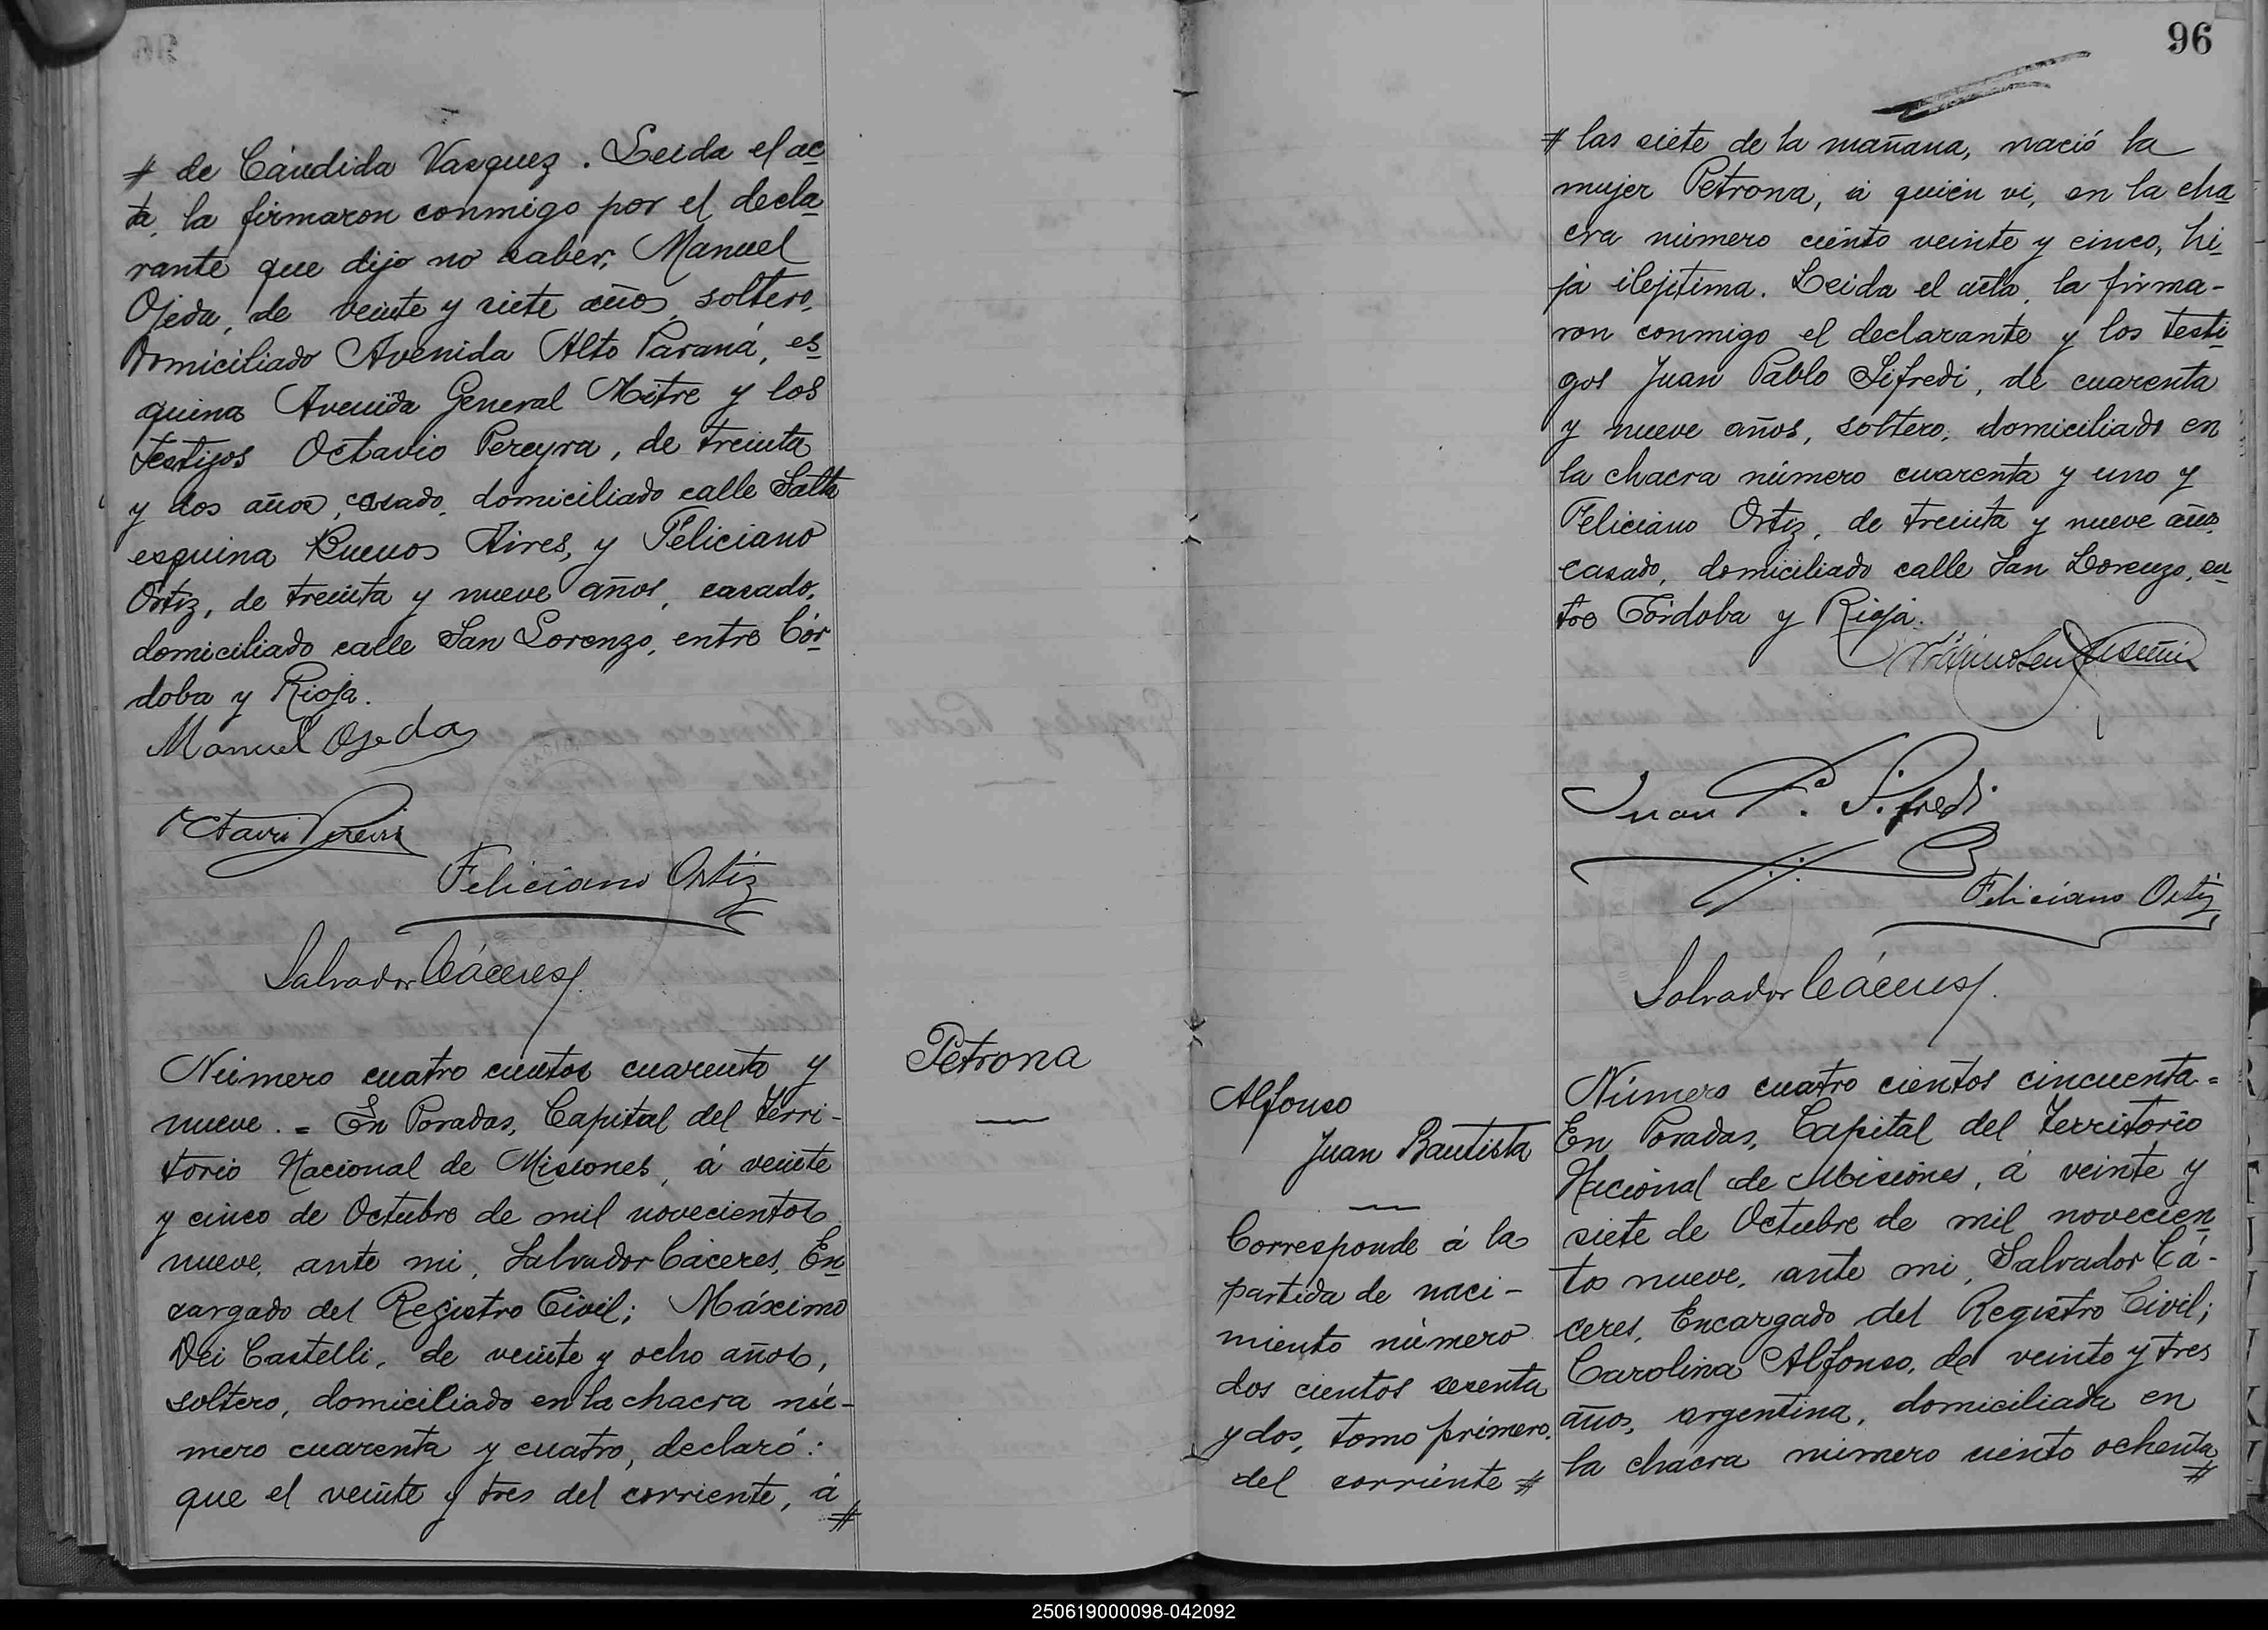 # de Cándida Vasquez. Leida el ac
ta, la firmaron conmigo por el decla
rante que dijo no saber, Manuel
Ojeda, de veinte y siete años, soltero,
domiciliado Avenida Alto Paraná, es
quina Avenida General Mitre y los
testigos Octavio Pereyra, de treinta
y dos años, casado, domiciliado calle Salta
esquina Buenos Aires, y Feliciano
Ortiz, de treinta y nueve años, casado,
domiciliado calle San Lorenzo, entre Cór
doba y Rioja.
Manuel Ojeda
Feliciano Ortiz
Salvador Cáceres
Número cuatro cientos cuarenta y
nueve. = En Posadas, Capital del Terri-
torio Nacional de Misiones, á veinte
y cinco de Octubre de mil novecientos
nueve, ante mi, Salvador Cáceres, En
cargado del Registro Civil; Máximo
Dei Castelli, de veinte y ocho años,
soltero, domiciliado en la chacra nú-
mero cuarenta y cuatro, declaró:
que el veinte y tres del corriente, á #
Petrona
96
# las siete de la mañana, nació la
mujer Petrona, á quién vi, en la cha
cra número ciento veinte y cinco, hi
ja ilejitima. Leida el acta, la firma-
ron conmigo el declarante y los testi
gos Juan Pablo Sifredi, de cuarenta
y nueve años, soltero, domiciliado en
la chacra número cuarenta y uno y
Feliciano Ortiz, de treinta y nueve años,
casado, domiciliado calle San Lorenzo, en
tre Córdoba y Rioja.
Juan P. Sifredi
Feliciano Ortiz
Salvador Cáceres
Alfonso
Juan Bautista
Corresponde á la
partida de naci-
miento número
dos cientos sesenta
y dos, tomo primero,
del corriente #
Número cuatro cientos cincuenta =
En Posadas, Capital del Territorio
Nacional de Misiones, á veinte y
siete de Octubre de mil novecien
tos nueve, ante mi, Salvador Cá-
ceres, Encargado del Registro Civil;
Carolina Alfonso, de veinte y tres
años, argentina, domiciliada en
la chacra número ciento ochenta #
250619000098-042092